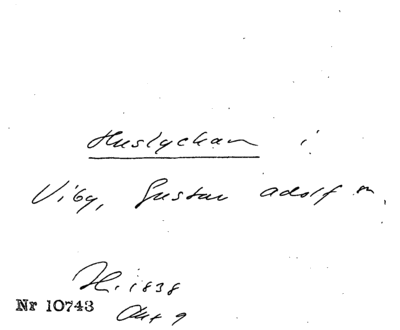 Huslyckan i
Viby, Gustav Adolf sn.
H. 1838
Nr 10743
Akt 9